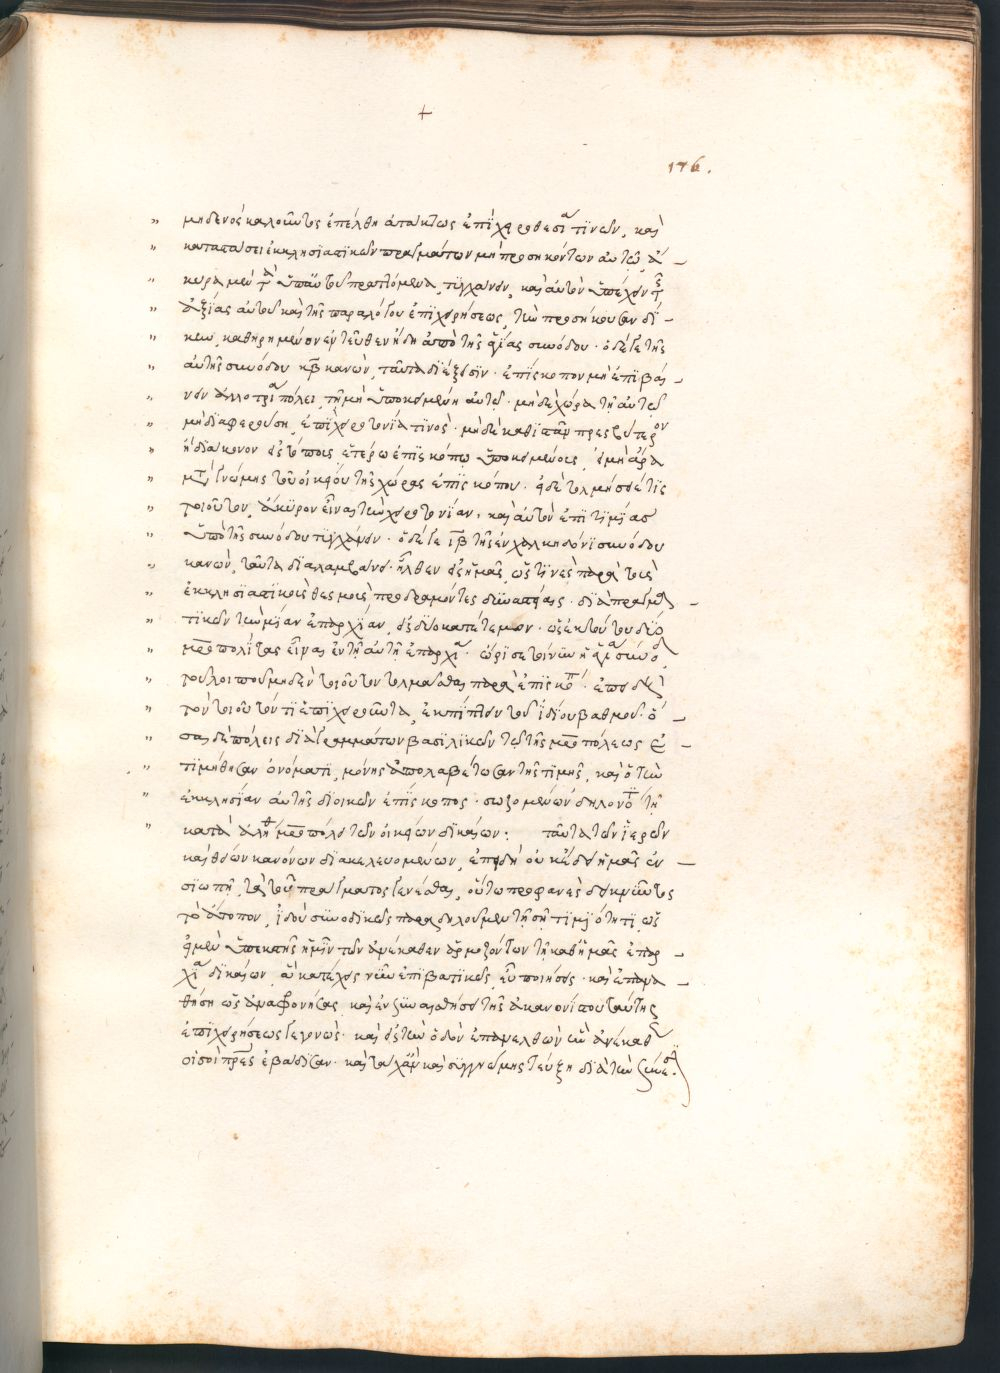 +
176.
μηδενὸς καλοῦντος ἐπέλθη ἀτάκτως ἐπὶ χειροθεσία τινῶν, καὶ
καταστάσει ἐκκλησιαστικῶν πραγμάτων μὴ προσηκόντων αὐτῷ, ἄ-
κυρα μὲν τὰ ὑπ' αὐτοῦ πραττόμενα τυγχάνειν, καὶ αὐτὸν ὑπέχειν τῆς
ἀταξίας αὐτοῦ καὶ τῆς παραλόγου ἐπιχειρήσεως, τὴν προσήκουσαν δί-
κην, καθηρημένον ἐντεῦθεν ἤδη ἀπὸ τῆς ἁγίας συνόδου· ὁ δέ γε τῆς
αὐτῆς συνόδου κβ κανὼν, ταῦτα διέξεισιν· ἐπίσκοπον μὴ ἐπιβαί-
νειν ἀλλοτρία πόλει, τῇ μὴ ὑποκειμένη αὐτῷ· μηδὲ χώρα τῇ αὐτῷ
μὴ διαφερούση, ἐπὶ χειροτονία τινὸς· μηδὲ καθιστᾶν πρεσβύτερον
ἢ διάκονον εἰς τόπους ἑτέρω ἐπισκόπω ὑποκειμένους, εἰ μὴ ἄρα
μετὰ γνώμης τοῦ οἰκείου τῆς χώρας ἐπισκόπου· εἰ δὲ τολμήσειέ τις
τοιοῦτον, ἄκυρον εἶναι τὴν χειροτονίαν, καὶ αὐτὸν ἐπιτιμίας
ὑπὸ τῆς συνόδου τυγχάνειν· ὁ δέ γε ιβ τῆς ἐν χαλκηδόνι συνόδου
κανὼν, ταῦτα διαλαμβάνει· ἦλθεν εἰς ἡμᾶς, ὥς τινες παρὰ τοὺς
ἐκκλησιαστικοὺς θεσμοὺς προδραμόντες δυναστείαις· διὰ πραγμα-
τικῶν τὴν μίαν ἐπαρχίαν, εἰς δύο κατέτεμον· ὡς ἐκ τούτου δύο
μητροπολίτας εἶναι ἐν τῇ αὐτῇ ἐπαρχία· ὥρισε τοίνυν ἡ ἁγία σύνοδος
τοῦ λοιποῦ μηδὲν τοιοῦτον τολμᾶσθαι παρὰ ἐπισκόπου· ἐπεὶ
τὸν τοιοῦτόν τι ἐπιχειροῦντα, ἐκπίπτειν τοῦ ἰδίου βαθμοῦ· ὅ-
σαι δὲ πόλεις διὰ γραμμάτων βασιλικῶν τῷ τῆς μητροπόλεως ἐ-
τιμήθησαν ὀνόματι, μόνης ἀπολαβέτωσαν τῆς τιμῆς, καὶ ὁ τὴν
ἐκκλησίαν αὐτῆς διοικῶν ἐπίσκοπος· σωζομένων δηλονότι τῇ
κατὰ ἀλήθειαν μητροπόλει τῶν οἰκείων δικαίων: ταῦτα τῶν ἱερῶν
καὶ θείων κανόνων διακελευομένων, ἐπειδὴ οὐκ ἔδει ἡμᾶς ἐν
σιωπῇ, τὰ τοῦ πράγματος γενέσθαι, οὕτω προφανὲς δεικνῦντος
τὸ ἄτοπον, ἰδοὺ συνοδικῶς παραδηλοῦμεν τῇ σῇ τιμιότητι, ὡς
εἰ μὲν ὑπεκστῆς ἡμῖν τῶν ἀνέκαθεν ἁρμοζόντων τῇ καθ' ἡμᾶς ἐπαρ-
χία δικαίων, ὧν κατέχεις νῦν ἐπιβατικῶς, εὖ ποιήσεις· καὶ ἐπαινε-
θήση ὡς ἀναφρονήσας καὶ ἐν συναισθήσει τῆς ἀκανονίστου ταύτης
ἐπιχειρήσεως γεγονὼς· καὶ εἰς τὴν ὁδὸν ἐπανελθὼν ἣν ἀνέκαθεν
οἱ σοὶ πατέρες ἐβάδιζαν· καὶ τυχὸν καὶ συγγνώμης τεύξη διὰ τὴν